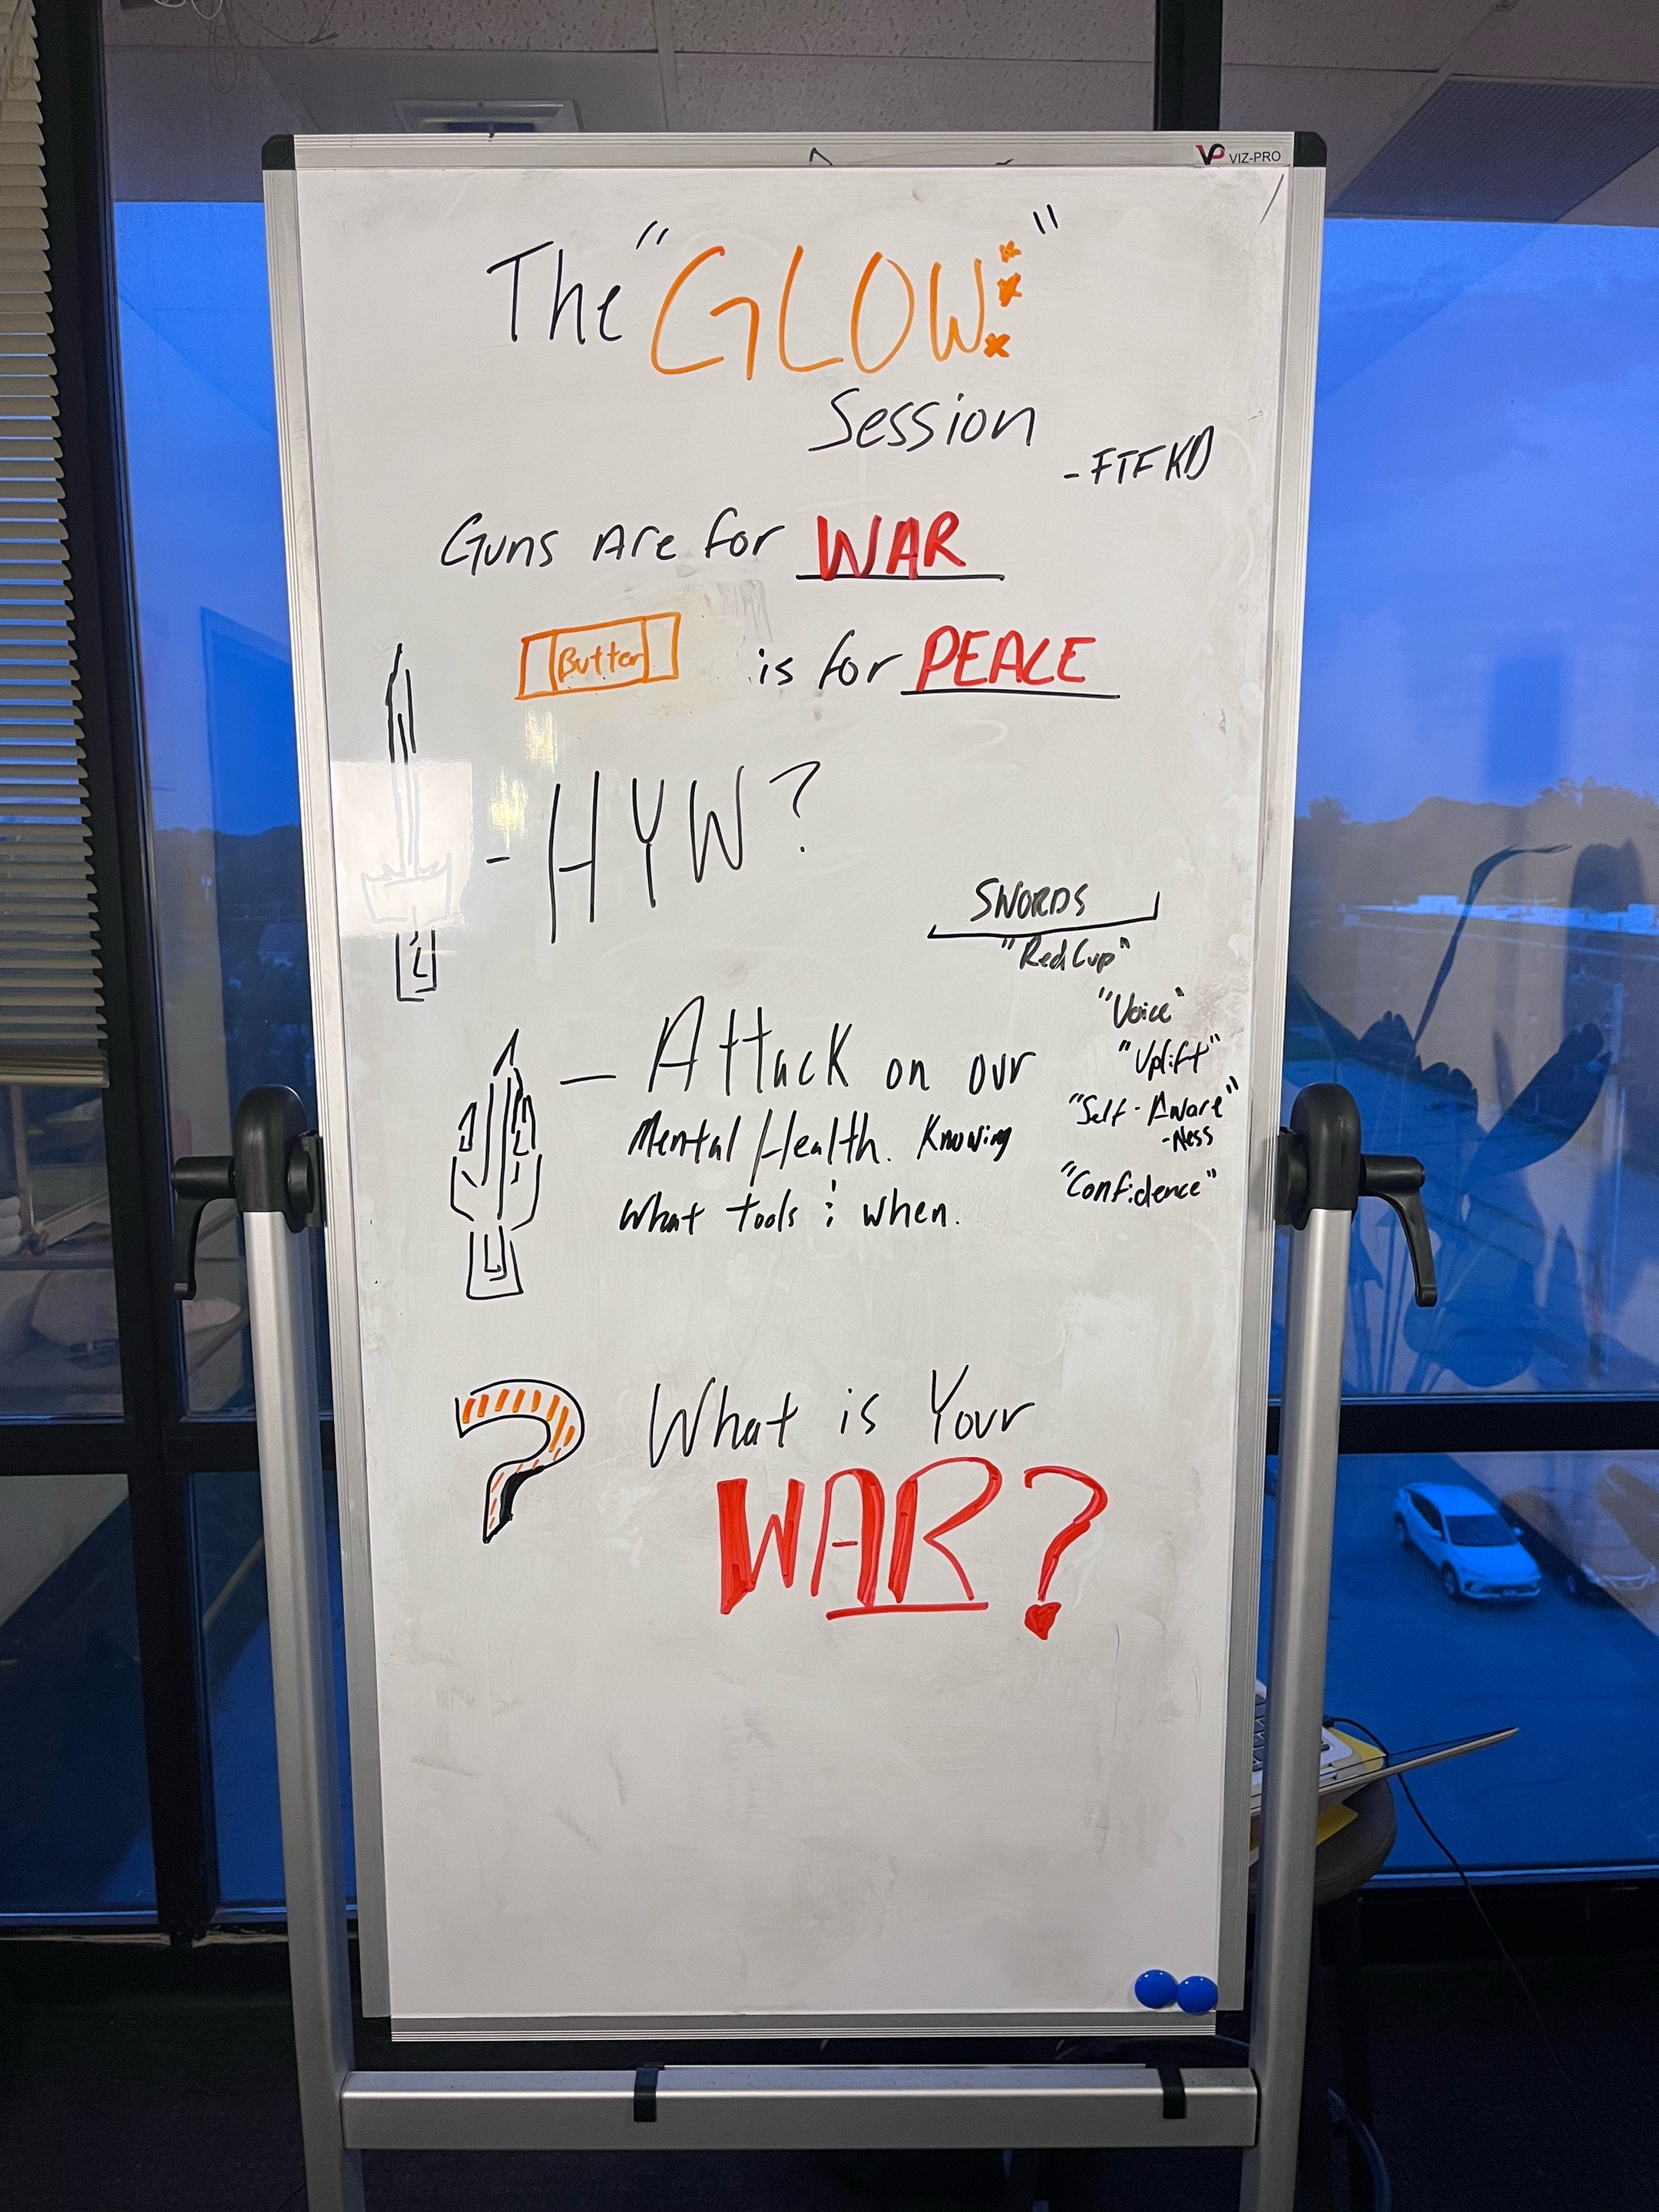 VP VIZ-PRO
The "GLOW"
Session
-FTFKD
Guns Are for WAR
Butter is for PEACE
- HYW?
SWORDS
"Red Cup"
"Voice"
"Uplift"
"Self-Aware"
-Ness
"Confidence"
— Attack on our
Mental Health. Knowing
What tools & when.
? What is Your
WAR?